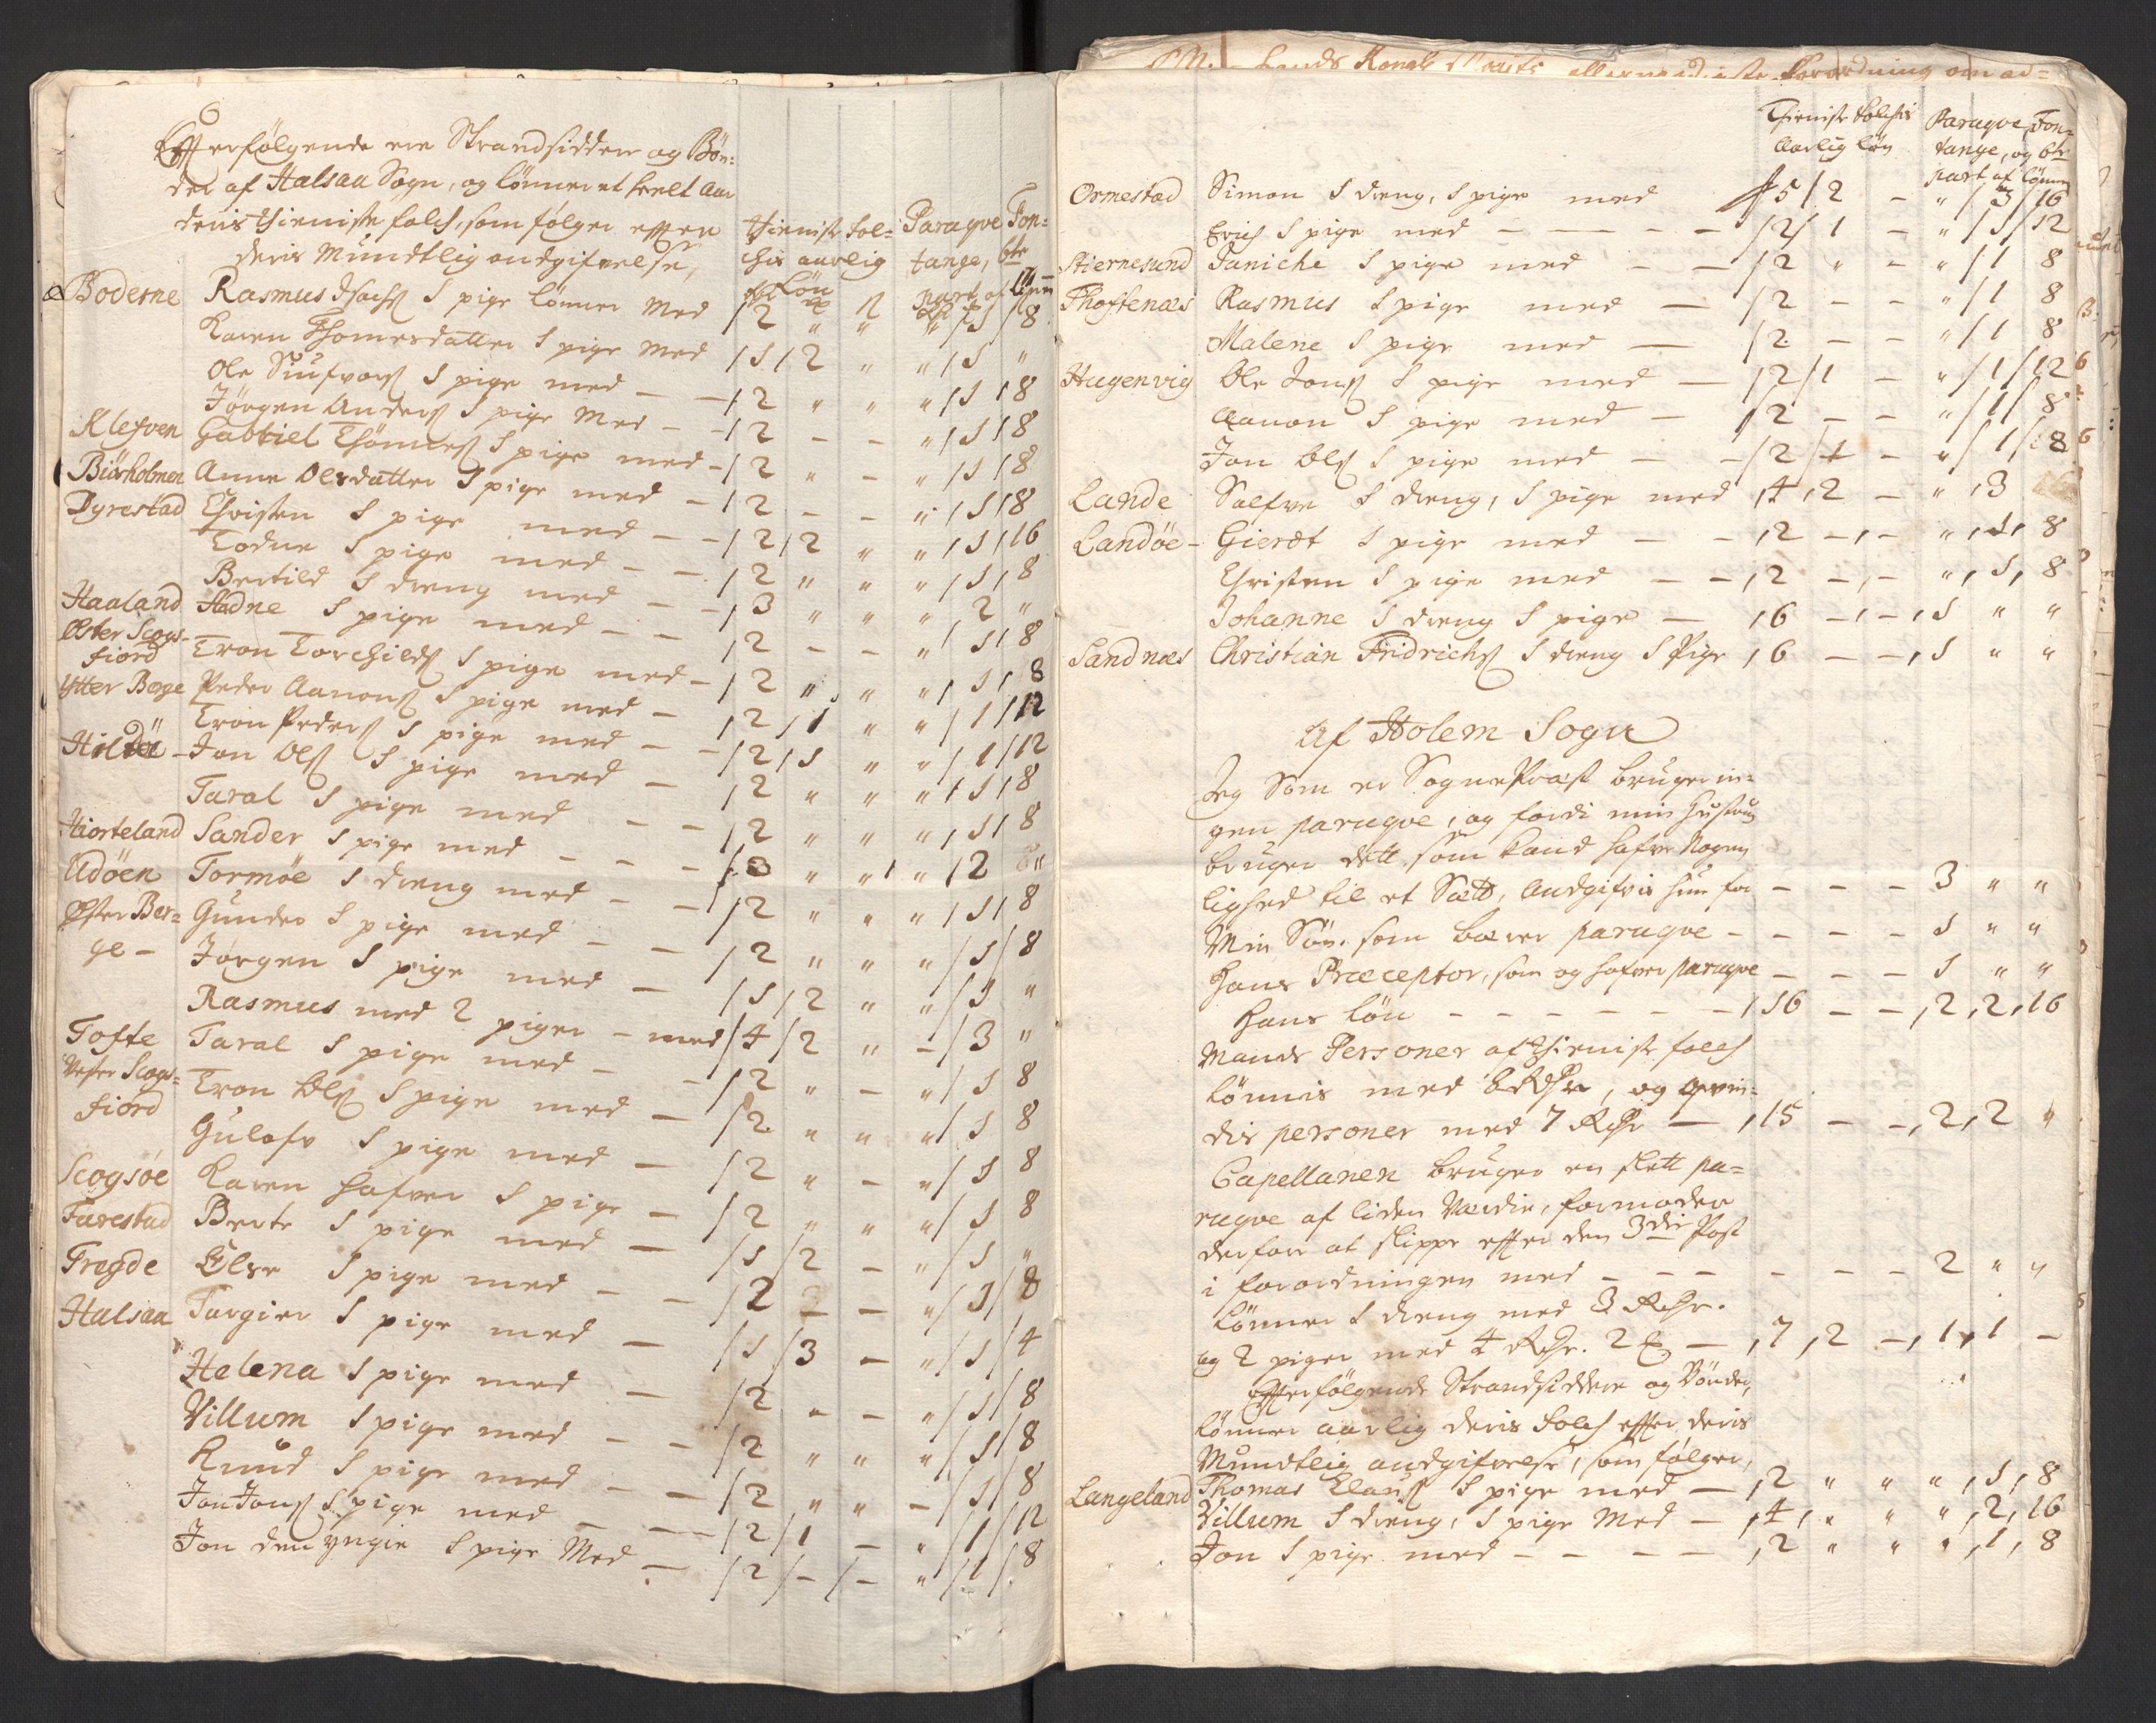 Efterfølgende ere Strandsiddere og Bøn-
der af Halsaa Sogn, og lønner et heelt Aar
deris thieniste folch, som følger effter
deris Mundtlig andgifvelse,
Thieniste Fol-
chis aarlig
Løn
Paraqve Fon-
tange, 6te
part af lønn
Boderne Rasmus Isachs 1 pige lønner Med /2 " " " /1 /8
Karen Thomesdatter 1 pige Med /1 /2 " " /1 "
Ole Siufvors 1 pige med – /2 " " " /1 /8
Jørgen Anders 1 pige Med – /2 – – " /1 /8
Klefven Gabriel Thommes 1 pige med – /2 " – " /1 /8
Biørholmen Anne Olsdatter 1 pige med – /2 – – " /1 /8
Dyrestad Christen 1 pige med – – /2 /2 " " /1 /16
Todne 1 pige med – – /2 " " " /1 /8
Bertild 1 dreng med – – /3 " " " 2 "
Haaland Aadne 1 pige med – – /2 – – " /1 /8
Øster Scogs-
fiord Tron Torchilds 1 pige med – /2 " " " /1 /8
Ytter Berge Peder Aanons 1 pige med – /2 /1 " " /1 /12
Tron Peders 1 pige med – – /2 /1 " " /1 /12
Hilde – Jon Ols 1 pige med – /2 " " " /1 /8
Taral 1 pige med – – /2 " " " /1 /8
Hiorteland Sander 1 pige med – – – /3 " " " /2 "
Udøen Tormøe 1 dreng med – – /2 " " " /1 /8
Øster Ber-
ge – Gunder 1 pige med – – /2 " " " /1 /8
Jørgen 1 pige med – /1 /2 " " /1 "
Rasmus med 2 piger – med /4 /2 " – /3 "
Tofte Taral 1 pige med – – /2 " – " /1 8
Vester Scogs-
fiord Tron Ols 1 pige med – /2 " " " /1 8
Gulof 1 pige med – /2 " – " /1 8
Scogsøe Karen hafver 1 pige – /2 " " " /1 8
Farestad Berte 1 pige med – /1 /2 – " /1 "
Fregde Else 1 pige med – – /2 – – " /1 /8
Halsaa Targier 1 pige med – /1 /3 – " /1 /4
Helena 1 pige med – /2 " – " /1 /8
Villum 1 pige med – – /2 " " " /1 /8
Knud 1 pige med – – /2 " " – /1 /8
Jon Jons 1 pige med – – /2 /1 – " /1 /12
Jon den yngre 1 pige Med – /2 /– /– " /1 /8
Thieniste folchis
Aarlig løn
Paraqve Fon-
tange, og 6te
part af lønnen
Ormestad Simon 1 dreng, 1 pige med /5 /2 – " /3 /16
Erich 1 pige med – – – – /2 /1 – " /1 /12
Stiernesund Daniche 1 pige med – – /2 " – " /1 8
Thoftenæs Rasmus 1 pige med – /2 – – " /1 8
Malene 1 pige med – /2 – – " /1 8
Hagenvig Ole Jons 1 pige med – /2 /1 – " /1 /12
Aanon 1 pige med – /2 – – " /1 /8
Jon Ols 1 pige med – – /2 /1 – " /1 /8
Lande Salfve 1 dreng, 1 pige med ,4 ,2 – " ,3
Landøe – Gierdt 1 pige med – – ,2 –,– " ,1, 8
Christen 1 pige med – – ,2 –,– " ,1, 8
Johanne 1 dreng 1 pige – ,6 –,– ,1 " "
Sandnæs Christian Fridrichs 1 dreng 1 Pige ,6 – – ,1 " "
Af Holem Sogn
Jeg Som er SognePræst bruger in-
gen paraqve, og fordi min Hustru
bruger dett som kand hafve Nogen
lighed til et Sætt, Andgifvis hun for – – – 3 " "
Min Søn som bærer paraqve – – – – 1 " "
Hans Præceptor, som og hafver paraqve – – – 1 " "
Hans løn – – – – – – – ,16 – – ,2 ,2 ,16
Mands Personer af thieniste folch
lønnis med 8 Rdr, og qvin-
dis personer med 7 Rdr – ,15 – – ,2 ,2 "
Capellanen bruger en slett pa-
raqve af liden Værdie, formoder
derfor at slippe effter den 3die Post
i forordningen med – – – – – – 2 " "
lønner 1 dreng med 3 Rdr.
og 2 piger med 4 Rdr. 2 – ,7 ,2 – ,1 ,1 –
Effterfølgende Strandsiddere og Bønder,
lønner aarlig deris folch effter deris
Mundtlig andgifvelse, som følger,
Langeland Thomas Claus 1 pige med – ,2 " " " ,1 ,8
Villum 1 dreng, 1 pige Med – ,4 , " " " ,2 ,16
Jon 1 pige med – – – – ,2 " " " ,1 , 8